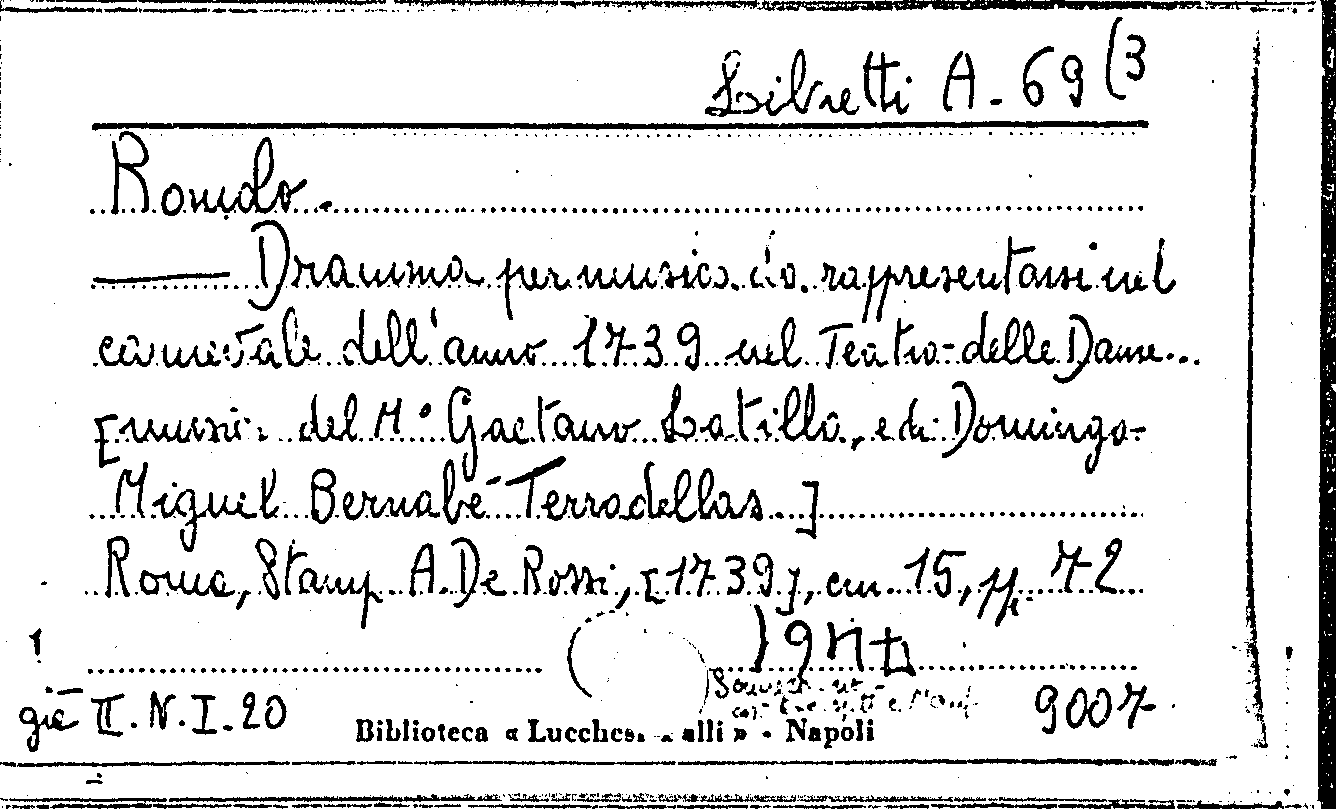 Libretti A. 69 (3
Romolo.
— Dramma per musica da rappresentarsi nel
carnevale dell'anno 1739 nel Teatro delle Dame...
[music. del M° Gaetano Latilla, e di Domingo
Miguel Bernabé Terradellas.]
Roma, Stamp. A. De Rossi, [1739], cm. 15, pp. 72
già II. N. I. 20
9007
Biblioteca « Lucchesi Palli » - Napoli